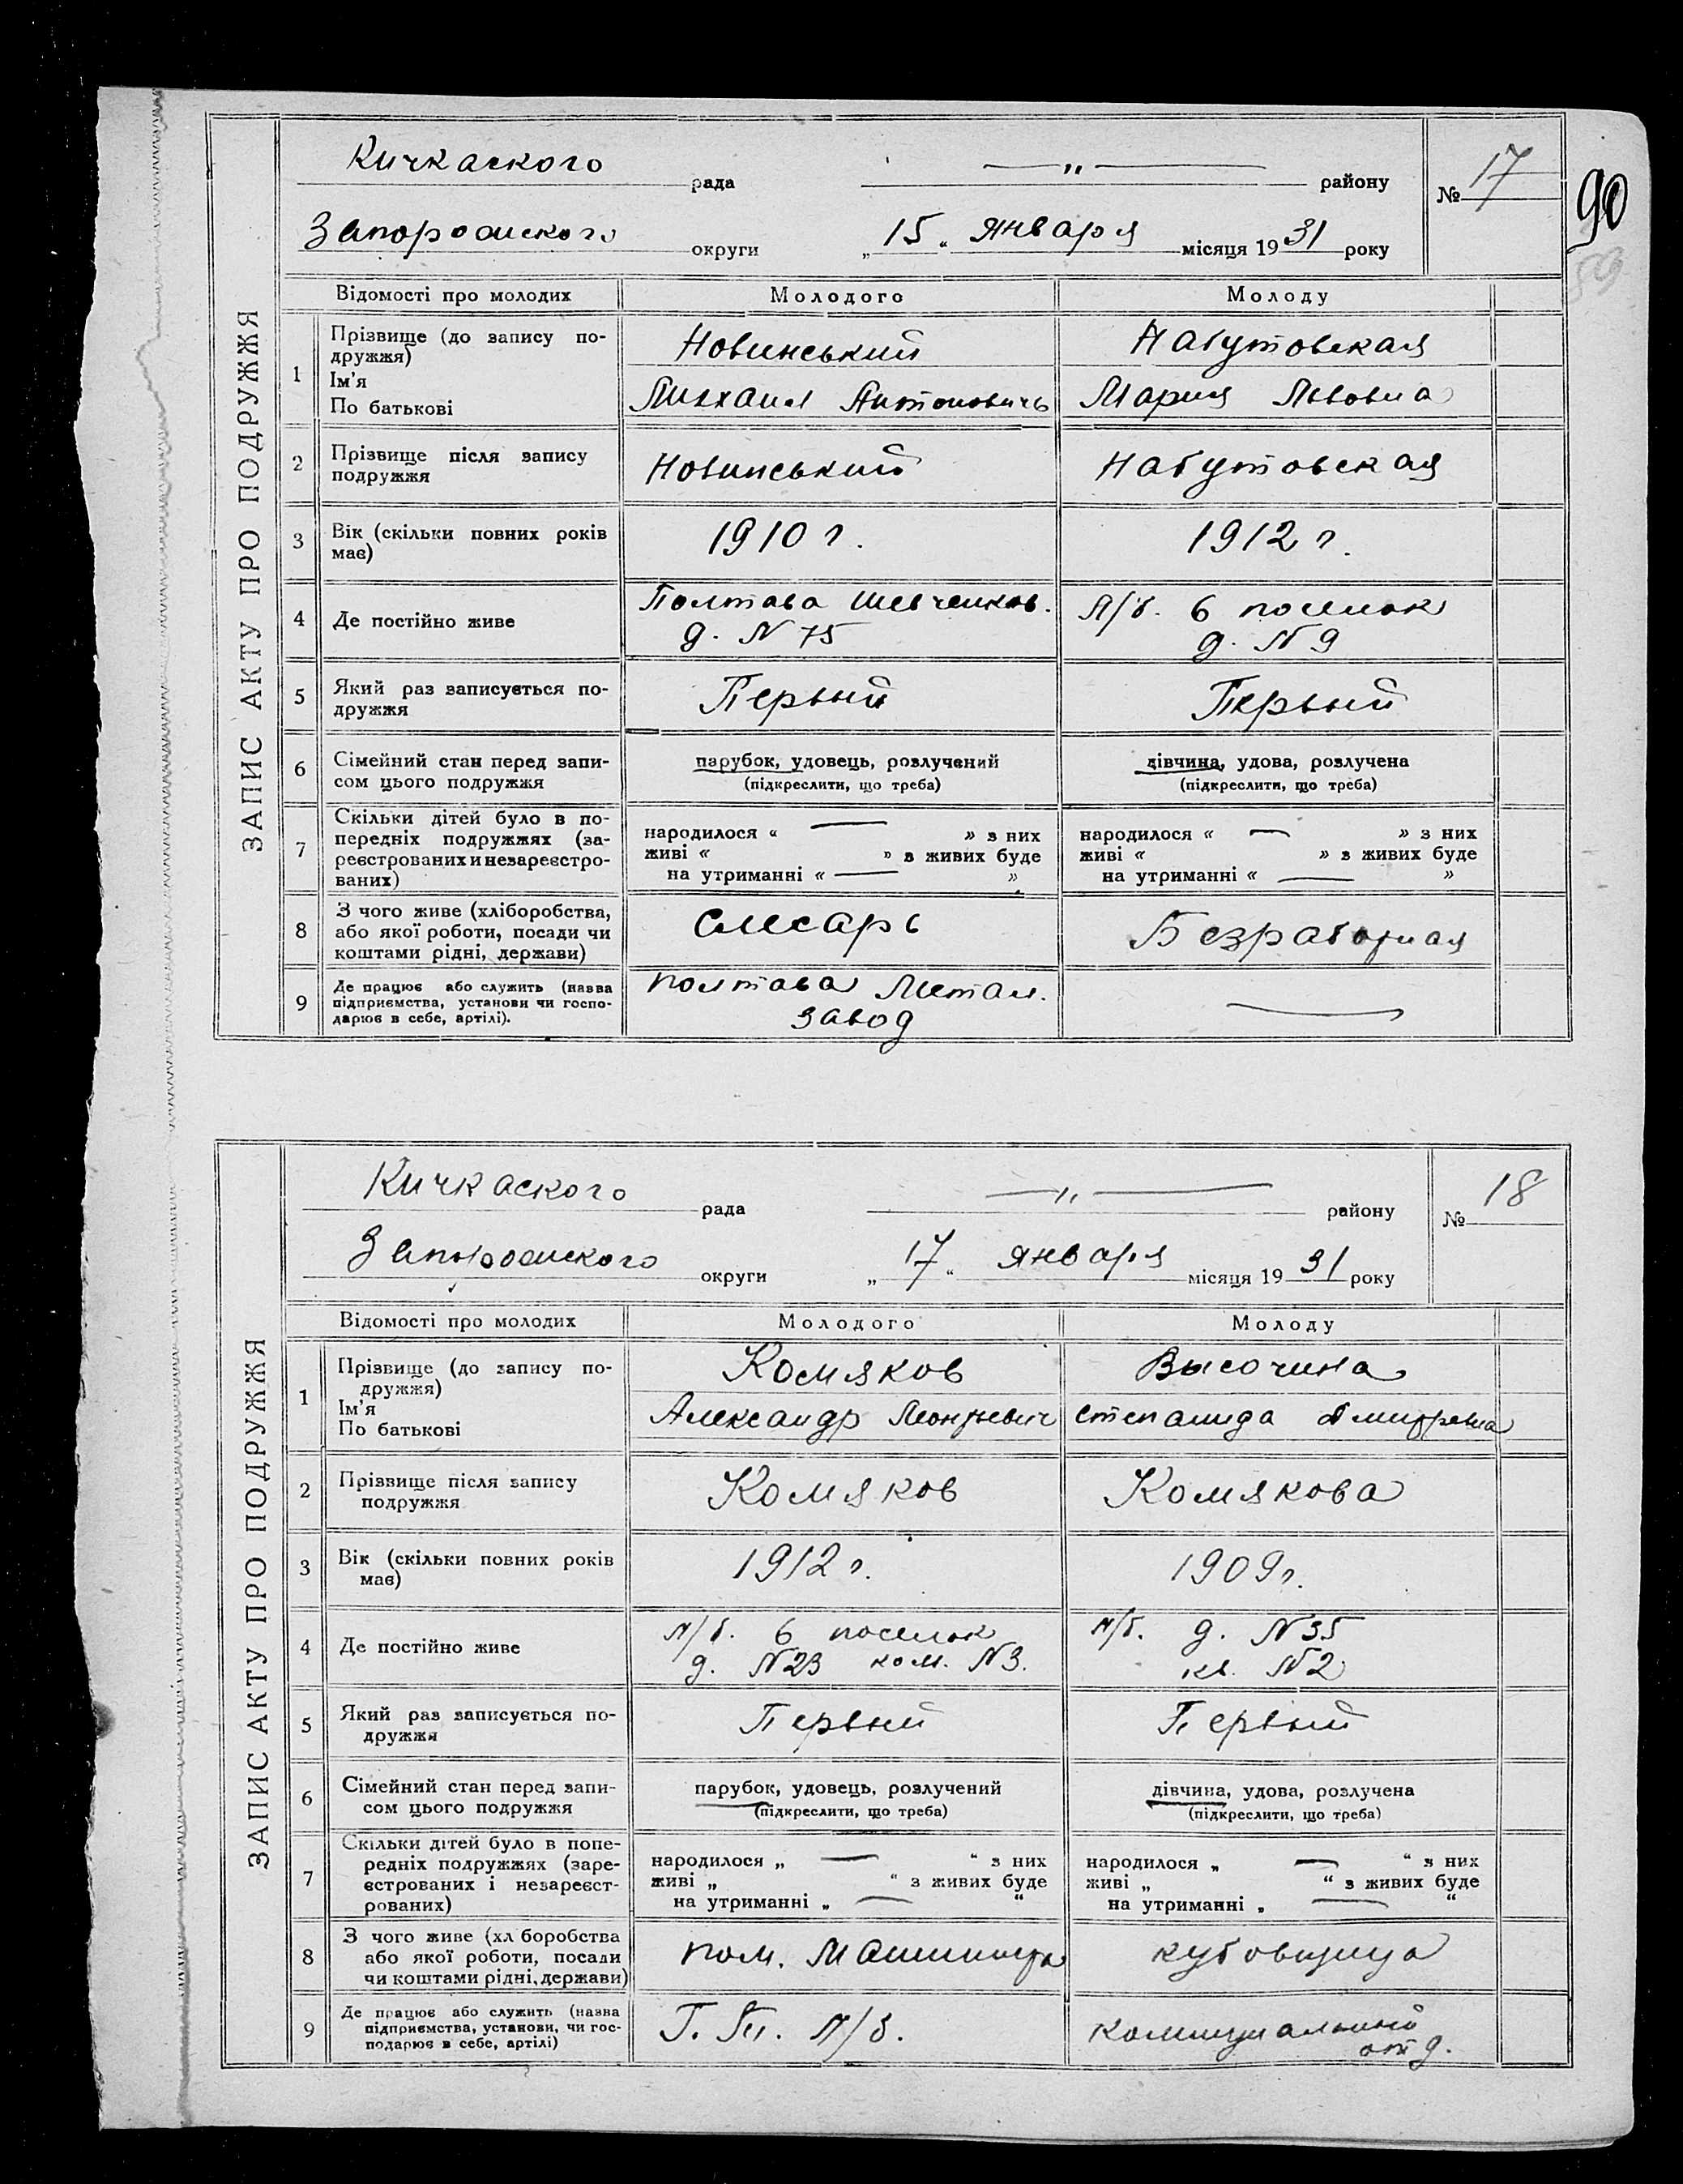 ЗАПИС АКТУ ПРО ПОДРУЖЖЯ
Кичкаского рада —"— району
№ 17
90
59
Запорожского округи „15" января місяця 1931 року
Відомості про молодих Молодого Молоду
1 Прізвище (до запису по-
дружжя)
Ім'я
По батькові
Новинський
Михаил Антоновичь
Набутовская
Мария Львовна
2 Прізвище після запису
подружжя
Новинський
Набутовская
3 Вік (скільки повних років
має)
1910 г.
1912 г.
4 Де постійно живе
Полтава Шевченков.
д. N 75
Л/б. 6 поселок
д. N 9
5 Який раз записується по-
дружжя
Первый
Первый
6 Сімейний стан перед запи-
сом цього подружжя
парубок, удовець, розлучений
(підкреслити, що треба)
дівчина, удова, розлучена
(підкреслити, що треба)
7 Скільки дітей було в по-
передніх подружжях (за-
реєстрованих и незареєстро-
ваних)
народилося « — » з них
живі « » з живих буде
на утриманні « — »
народилося « — » з них
живі « » з живих буде
на утриманні « — »
8 З чого живе (хліборобства,
або якої роботи, посади чи
коштами рідні, держави)
Слесарь
Безработная
9 Де працює або служить (назва
підприємства, установи чи госпо-
дарює в себе, артілі).
Полтава Метал.
завод
—
ЗАПИС АКТУ ПРО ПОДРУЖЖЯ
Кичкаского рада —"— району
№ 18
Запорожского округи „17" января місяця 1931 року
Відомості про молодих Молодого Молоду
1 Прізвище (до запису по-
дружжя)
Ім'я
По батькові
Комяков
Александр Леонтьевич
Высочина
Степанида Дмитревна
2 Прізвище після запису
подружжя
Комяков
Комякова
3 Вік (скільки повних років
має)
1912 г.
1909 г.
4 Де постійно живе
Л/б. 6 поселок
д. N23 ком. N3.
Л/б. д. N35
кв. N2
5 Який раз записується по-
дружжя
Первый
Первый
6 Сімейний стан перед запи-
сом цього подружжя
парубок, удовець, розлучений
(підкреслити, що треба)
дівчина, удова, розлучена
(підкреслити, що треба)
7 Скільки дітей було в попе-
редніх подружжях (заре-
єстрованих і незареєст-
рованих)
народилося „ — " з них
живі „ " з живих буде
на утриманні „ — "
народилося „ — " з них
живі „ " з живих буде
на утриманні „ — "
8 З чого живе (хл боробства
або якої роботи, посади
чи коштами рідні, держави)
пом. Машиниста
кубовщица
9 Де працює або служить (назва
підприємства, установи, чи гос-
подарює в себе, артілі)
Л/б.
Коммунальный
отд.